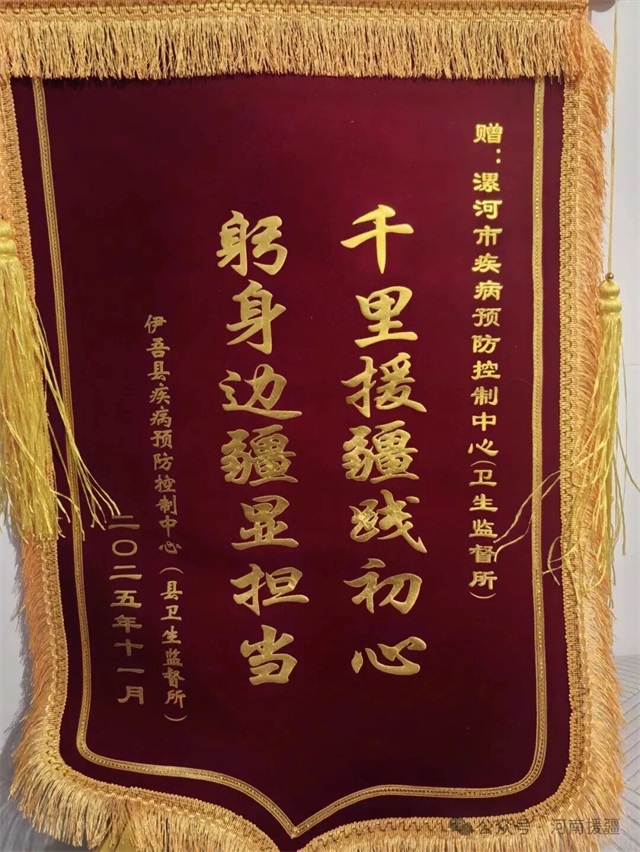 赠：漯河市疾病预防控制中心（卫生监督所）
千里援疆践初心
躬身边疆显担当
伊吾县疾病预防控制中心（县卫生监督所）
二〇二五年十一月
公众号·河南援疆